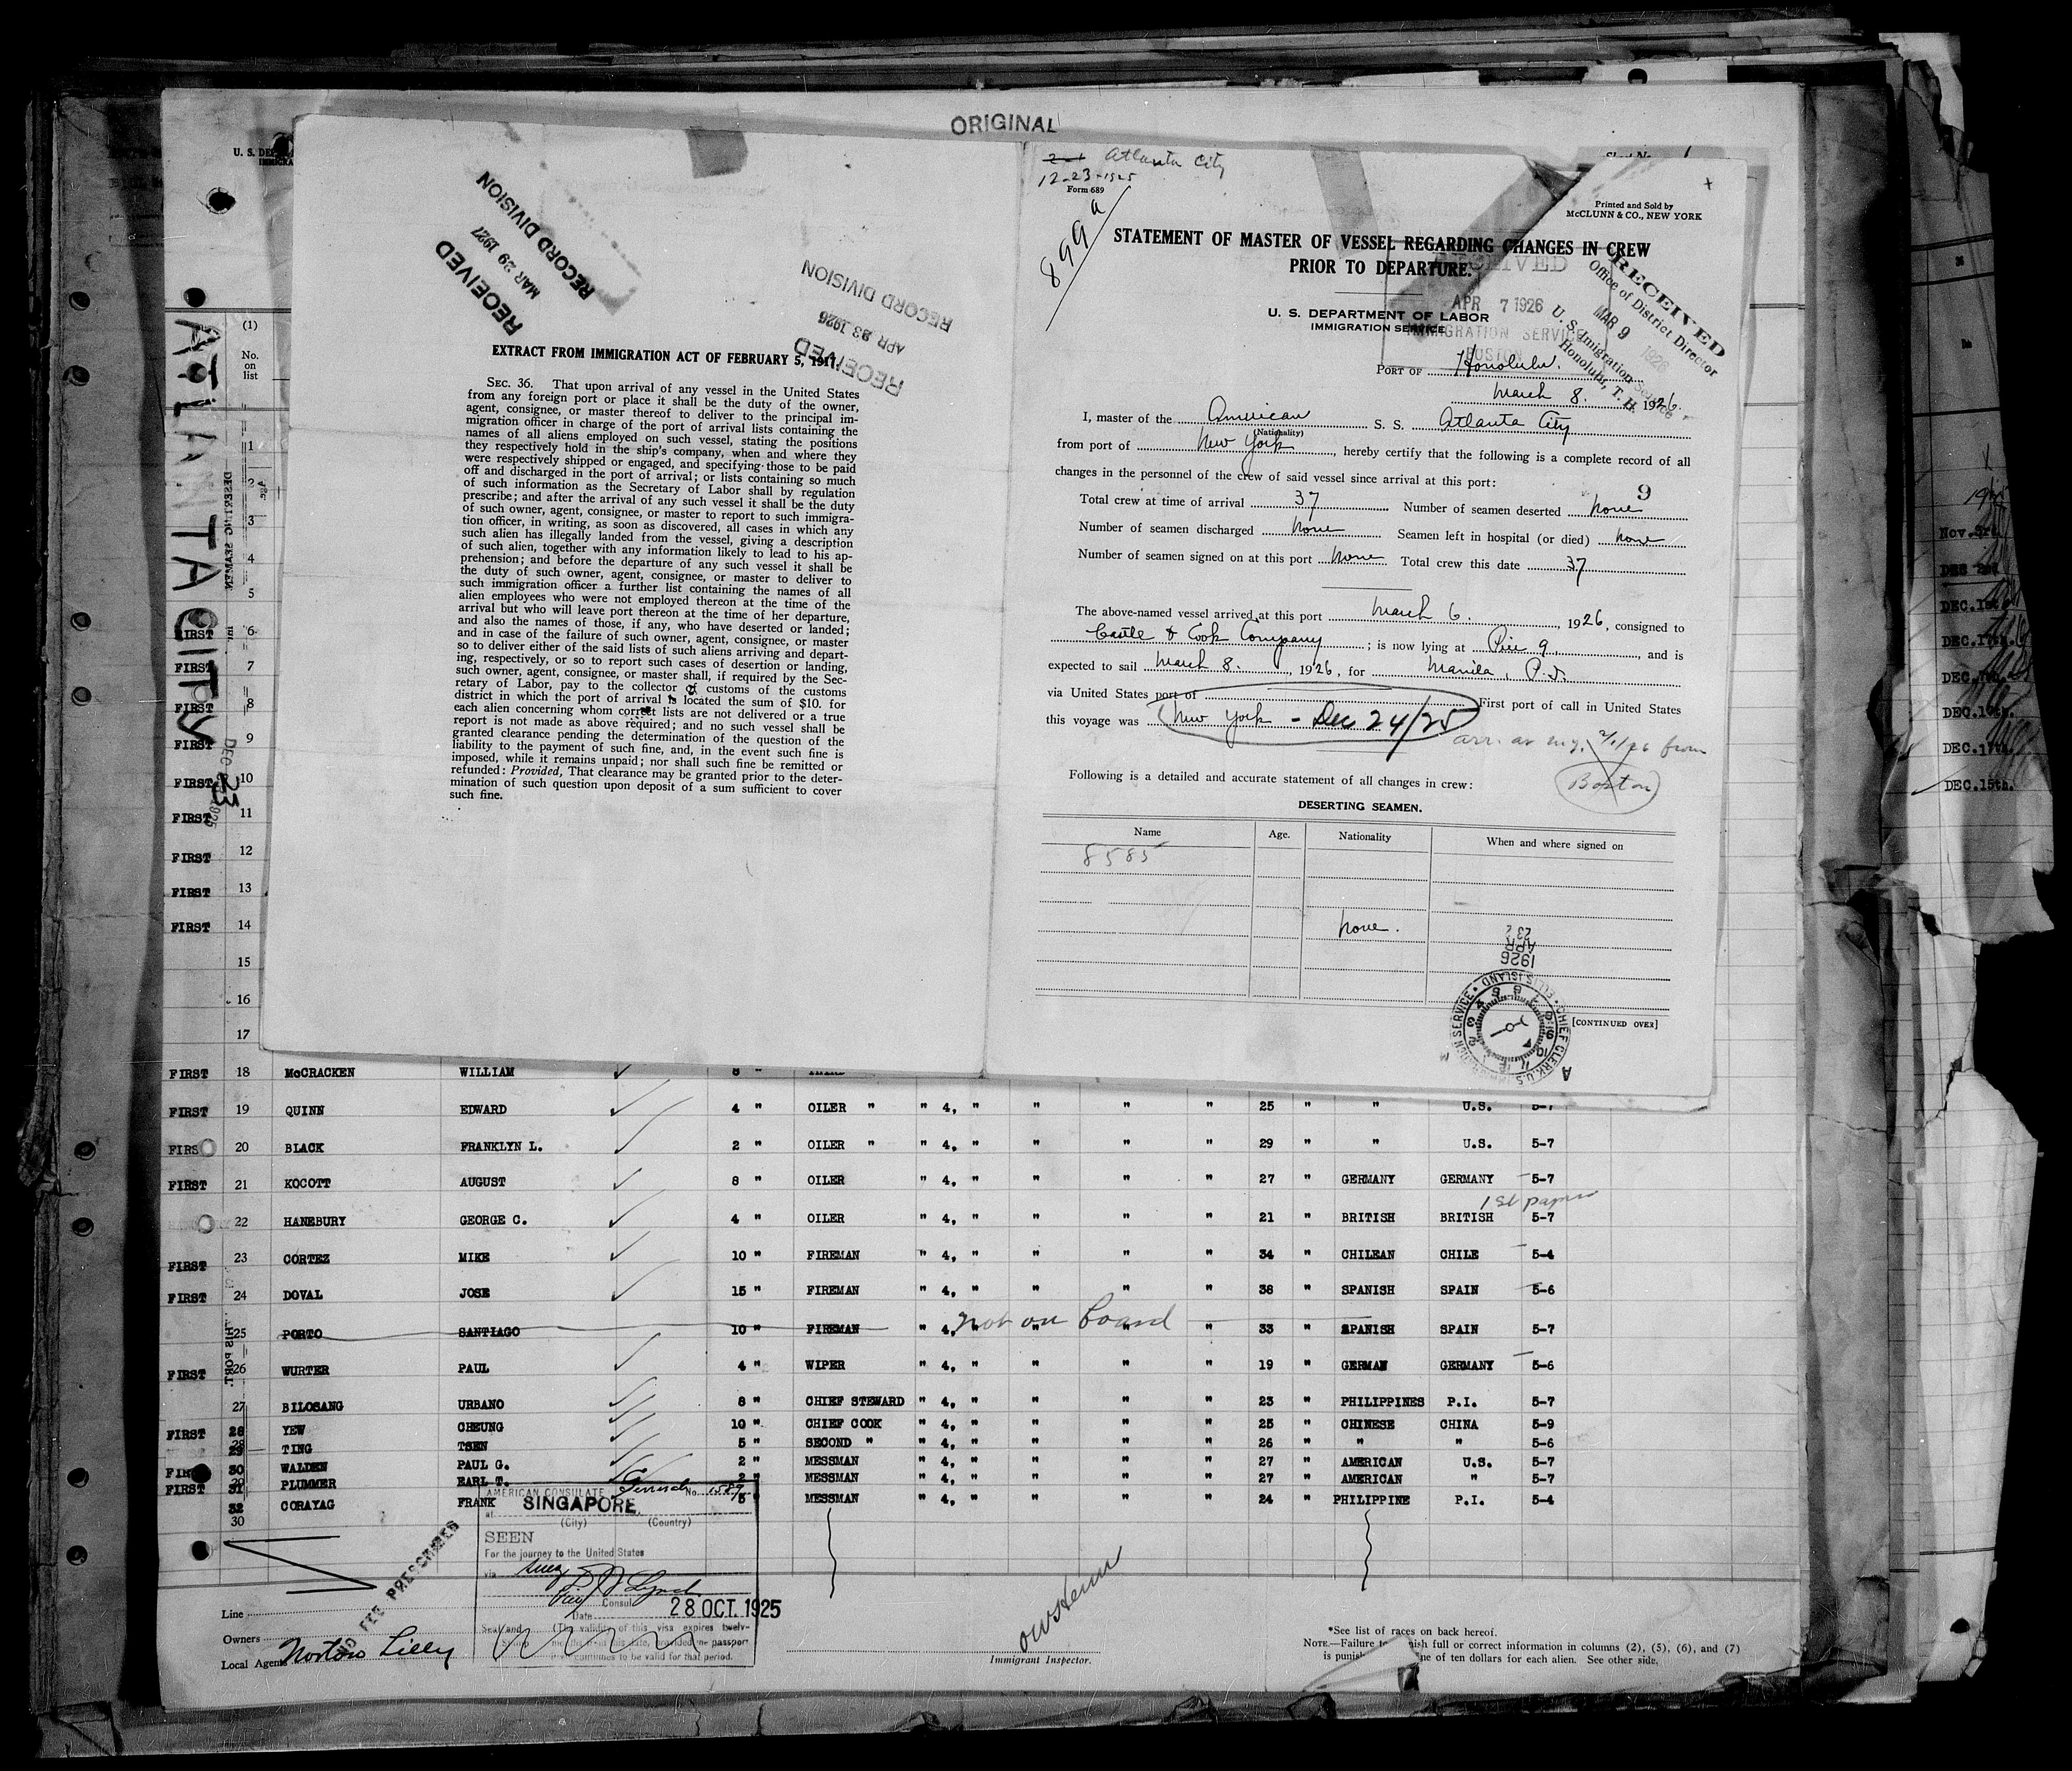 ORIGINAL
U. S. DE
IMMIGRA
ATLANTA CITY
DEC 23 1925
(1)
No.
on
list
RECEIVED
MAR 29 1927
RECORD DIVISION
RECEIVED
APR 23 1926
RECORD DIVISION
EXTRACT FROM IMMIGRATION ACT OF FEBRUARY 5, 1917.
SEC. 36. That upon arrival of any vessel in the United States
from any foreign port or place it shall be the duty of the owner,
agent, consignee, or master thereof to deliver to the principal im-
migration officer in charge of the port of arrival lists containing the
names of all aliens employed on such vessel, stating the positions
they respectively hold in the ship's company, when and where they
were respectively shipped or engaged, and specifying those to be paid
off and discharged in the port of arrival; or lists containing so much
of such information as the Secretary of Labor shall by regulation
prescribe; and after the arrival of any such vessel it shall be the duty
of such owner, agent, consignee, or master to report to such immigra-
tion officer, in writing, as soon as discovered, all cases in which any
such alien has illegally landed from the vessel, giving a description
of such alien, together with any information likely to lead to his ap-
prehension; and before the departure of any such vessel it shall be
the duty of such owner, agent, consignee, or master to deliver to
such immigration officer a further list containing the names of all
alien employees who were not employed thereon at the time of the
arrival but who will leave port thereon at the time of her departure,
and also the names of those, if any, who have deserted or landed;
and in case of the failure of such owner, agent, consignee, or master
so to deliver either of the said lists of such aliens arriving and depart-
ing, respectively, or so to report such cases of desertion or landing,
such owner, agent, consignee, or master shall, if required by the Sec-
retary of Labor, pay to the collector of customs of the customs
district in which the port of arrival is located the sum of $10. for
each alien concerning whom correct lists are not delivered or a true
report is not made as above required; and no such vessel shall be
granted clearance pending the determination of the question of the
liability to the payment of such fine, and, in the event such fine is
imposed, while it remains unpaid; nor shall such fine be remitted or
refunded: Provided, That clearance may be granted prior to the deter-
mination of such question upon deposit of a sum sufficient to cover
such fine.
Atlanta City
12-23-1925
Form 689
899 a
Printed and Sold by
McCLUNN & CO., NEW YORK
STATEMENT OF MASTER OF VESSEL REGARDING CHANGES IN CREW
PRIOR TO DEPARTURE.
U. S. DEPARTMENT OF LABOR
IMMIGRATION SERVICE
RECEIVED
APR 7 1926
IMMIGRATION SERVICE
BOSTON
RECEIVED
Office of District Director
MAR 9 1926
U. S. Immigration Service
Honolulu, T. H.
PORT OF Honolulu.
March 8. 1926.
I, master of the American S. S. Atlanta City
(Nationality)
from port of New York, hereby certify that the following is a complete record of all
changes in the personnel of the crew of said vessel since arrival at this port:
9
Total crew at time of arrival 37 Number of seamen deserted none
Number of seamen discharged none Seamen left in hospital (or died) none
Number of seamen signed on at this port none Total crew this date 37
The above-named vessel arrived at this port March 6. , 1926, consigned to
Castle & Cook Company ; is now lying at Pier 9. , and is
expected to sail March 8. , 1926, for Manila, P.I.
via United States port of First port of call in United States
this voyage was New York - Dec 24/25
arr. at n.y. 2/1/26 from
Boston
Following is a detailed and accurate statement of all changes in crew:
DESERTING SEAMEN.
Name Age. Nationality When and where signed on
8585
none.
APR 23
1926
CHIEF CLERK, U.S. IMMIGRATION SERVICE • ELLIS ISLAND •
[CONTINUED OVER]
Nov.3rd.
DEC.1st.
DEC.17th.
DEC.7th.
DEC.16th.
DEC.17th.
DEC.15th.
1
2
3
4
5
FIRST 6
FIRST 7
FIRST 8
FIRST 9
FIRST 10
FIRST 11
FIRST 12
FIRST 13
FIRST 14
15
16
17
FIRST 18 McCRACKEN WILLIAM 8 "
FIRST 19 QUINN EDWARD 4 " OILER " " 4, " " " " 25 " " U.S. 5-7
FIRS 20 BLACK FRANKLYN L. 2 " OILER " " 4, " " " " 29 " " U.S. 5-7
FIRST 21 KOCOTT AUGUST 8 " OILER " 4, " " " " 27 " GERMANY GERMANY 5-7
1st papers
22 HANEBURY GEORGE C. 4 " OILER " 4, " " " " 21 " BRITISH BRITISH 5-7
FIRST 23 CORTEZ MIKE 10 " FIREMAN " 4, " " " " 34 " CHILEAN CHILE 5-4
FIRST 24 DOVAL JOSE 15 " FIREMAN " 4, " " " " 38 " SPANISH SPAIN 5-6
not on board
25 PORTO SANTIAGO 10 " FIREMAN " 4, " " " " 33 " SPANISH SPAIN 5-7
FIRST 26 WURTER PAUL 4 " WIPER " 4, " " " " 19 " GERMAN GERMANY 5-6
27 BILOSANG URBANO 8 " CHIEF STEWARD " 4, " " " " 23 " PHILIPPINES P.I. 5-7
FIRST 28 YEW CHEUNG 10 " CHIEF COOK " 4, " " " " 25 " CHINESE CHINA 5-9
29 TING TSEN 5 " SECOND " " 4, " " " " 26 " " " 5-6
FIR 30 WALDEN PAUL G. 2 " MESSMAN " 4, " " " " 27 " AMERICAN U.S. 5-7
FIRST 31 PLUMMER EARL T. 2 " MESSMAN " 4, " " " " 27 " AMERICAN " 5-7
32 CORAYAG FRANK 5 " MESSMAN " 4, " " " " 24 " PHILIPPINE P.I. 5-4
30
NO FEE PRESCRIBED
AMERICAN CONSULATE General No. 1589
at SINGAPORE.
(City) (Country)
SEEN
For the journey to the United States
via Suez
Vice Consul
Date 28 OCT. 1925
Seal and (The validity of this visa expires twelve
Stamp months from this date, provided the passport
continues to be valid for that period.
Line
Owners
Local Agents Norton Lilly
Immigrant Inspector.
*See list of races on back hereof.
NOTE.—Failure to nish full or correct information in columns (2), (5), (6), and (7)
is punish ne of ten dollars for each alien. See other side.